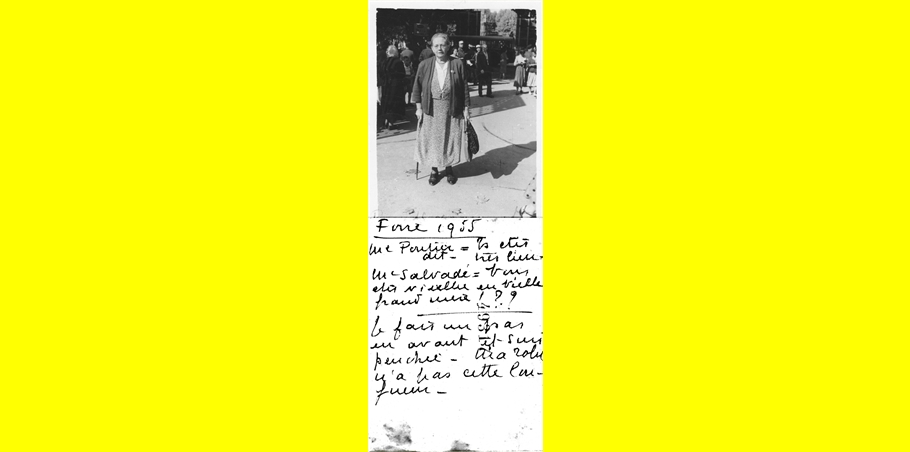 Foire 1955
Me Pontier = Vs etes
dit – très bien –
Me Salvadé = Vous
etes vieillie en vieille
grand mère ! ? ?
Je fais un pas
en avant et suis
penchée – Ma robe
n'a pas cette lon-
gueur –